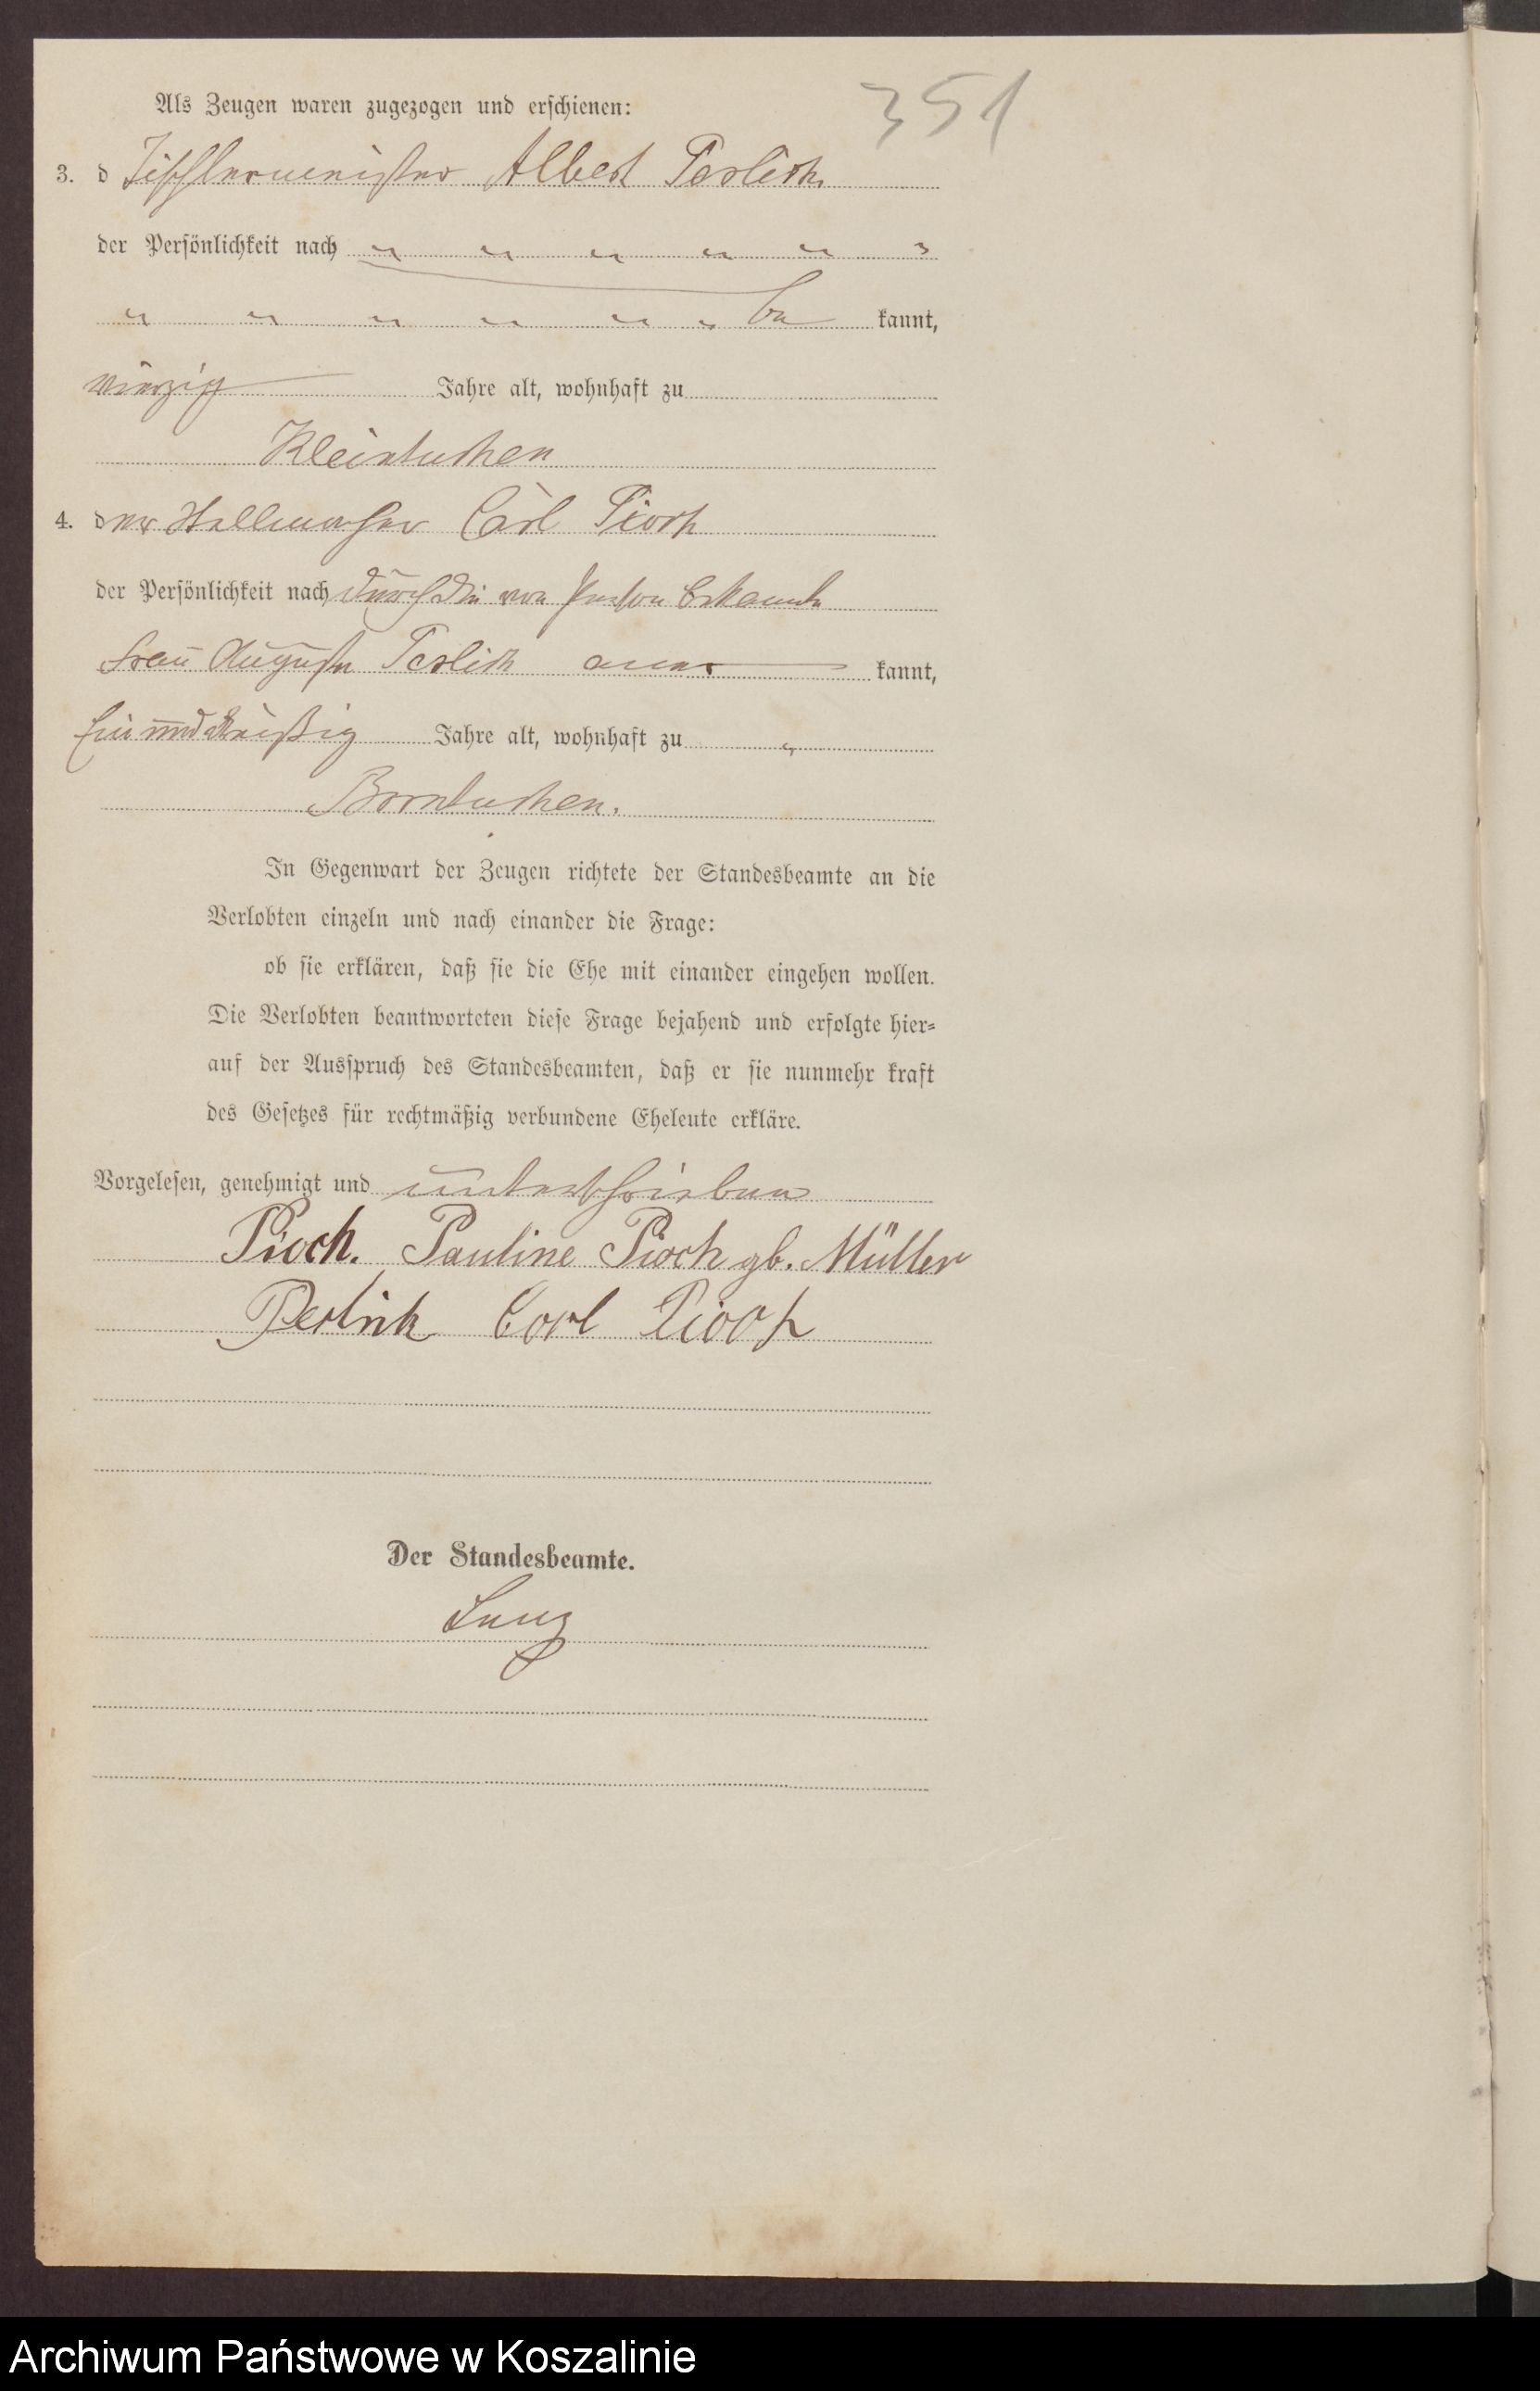 351
Als Zeugen waren zugezogen und erschienen:
3. d Tischlermeister Albert Perlick
der Persönlichkeit nach " " " " " "
" " " " " " be kannt,
vierzig Jahre alt, wohnhaft zu
Kleintuchen
4. der Stellmacher Carl Pioch
der Persönlichkeit nach durch die von Person bekannte
Frau Auguste Perlick aner kannt,
Ein und dreißig Jahre alt, wohnhaft zu "
Borntuchen.
In Gegenwart der Zeugen richtete der Standesbeamte an die
Verlobten einzeln und nach einander die Frage:
ob sie erklären, daß sie die Ehe mit einander eingehen wollen.
Die Verlobten beantworteten diese Frage bejahend und erfolgte hier-
auf der Ausspruch des Standesbeamten, daß er sie nunmehr kraft
des Gesetzes für rechtmäßig verbundene Eheleute erkläre.
Vorgelesen, genehmigt und unterschrieben
Pioch. Pauline Pioch gb. Müller
Perlick Carl Pioch
Der Standesbeamte.
Archiwum Państwowe w Koszalinie